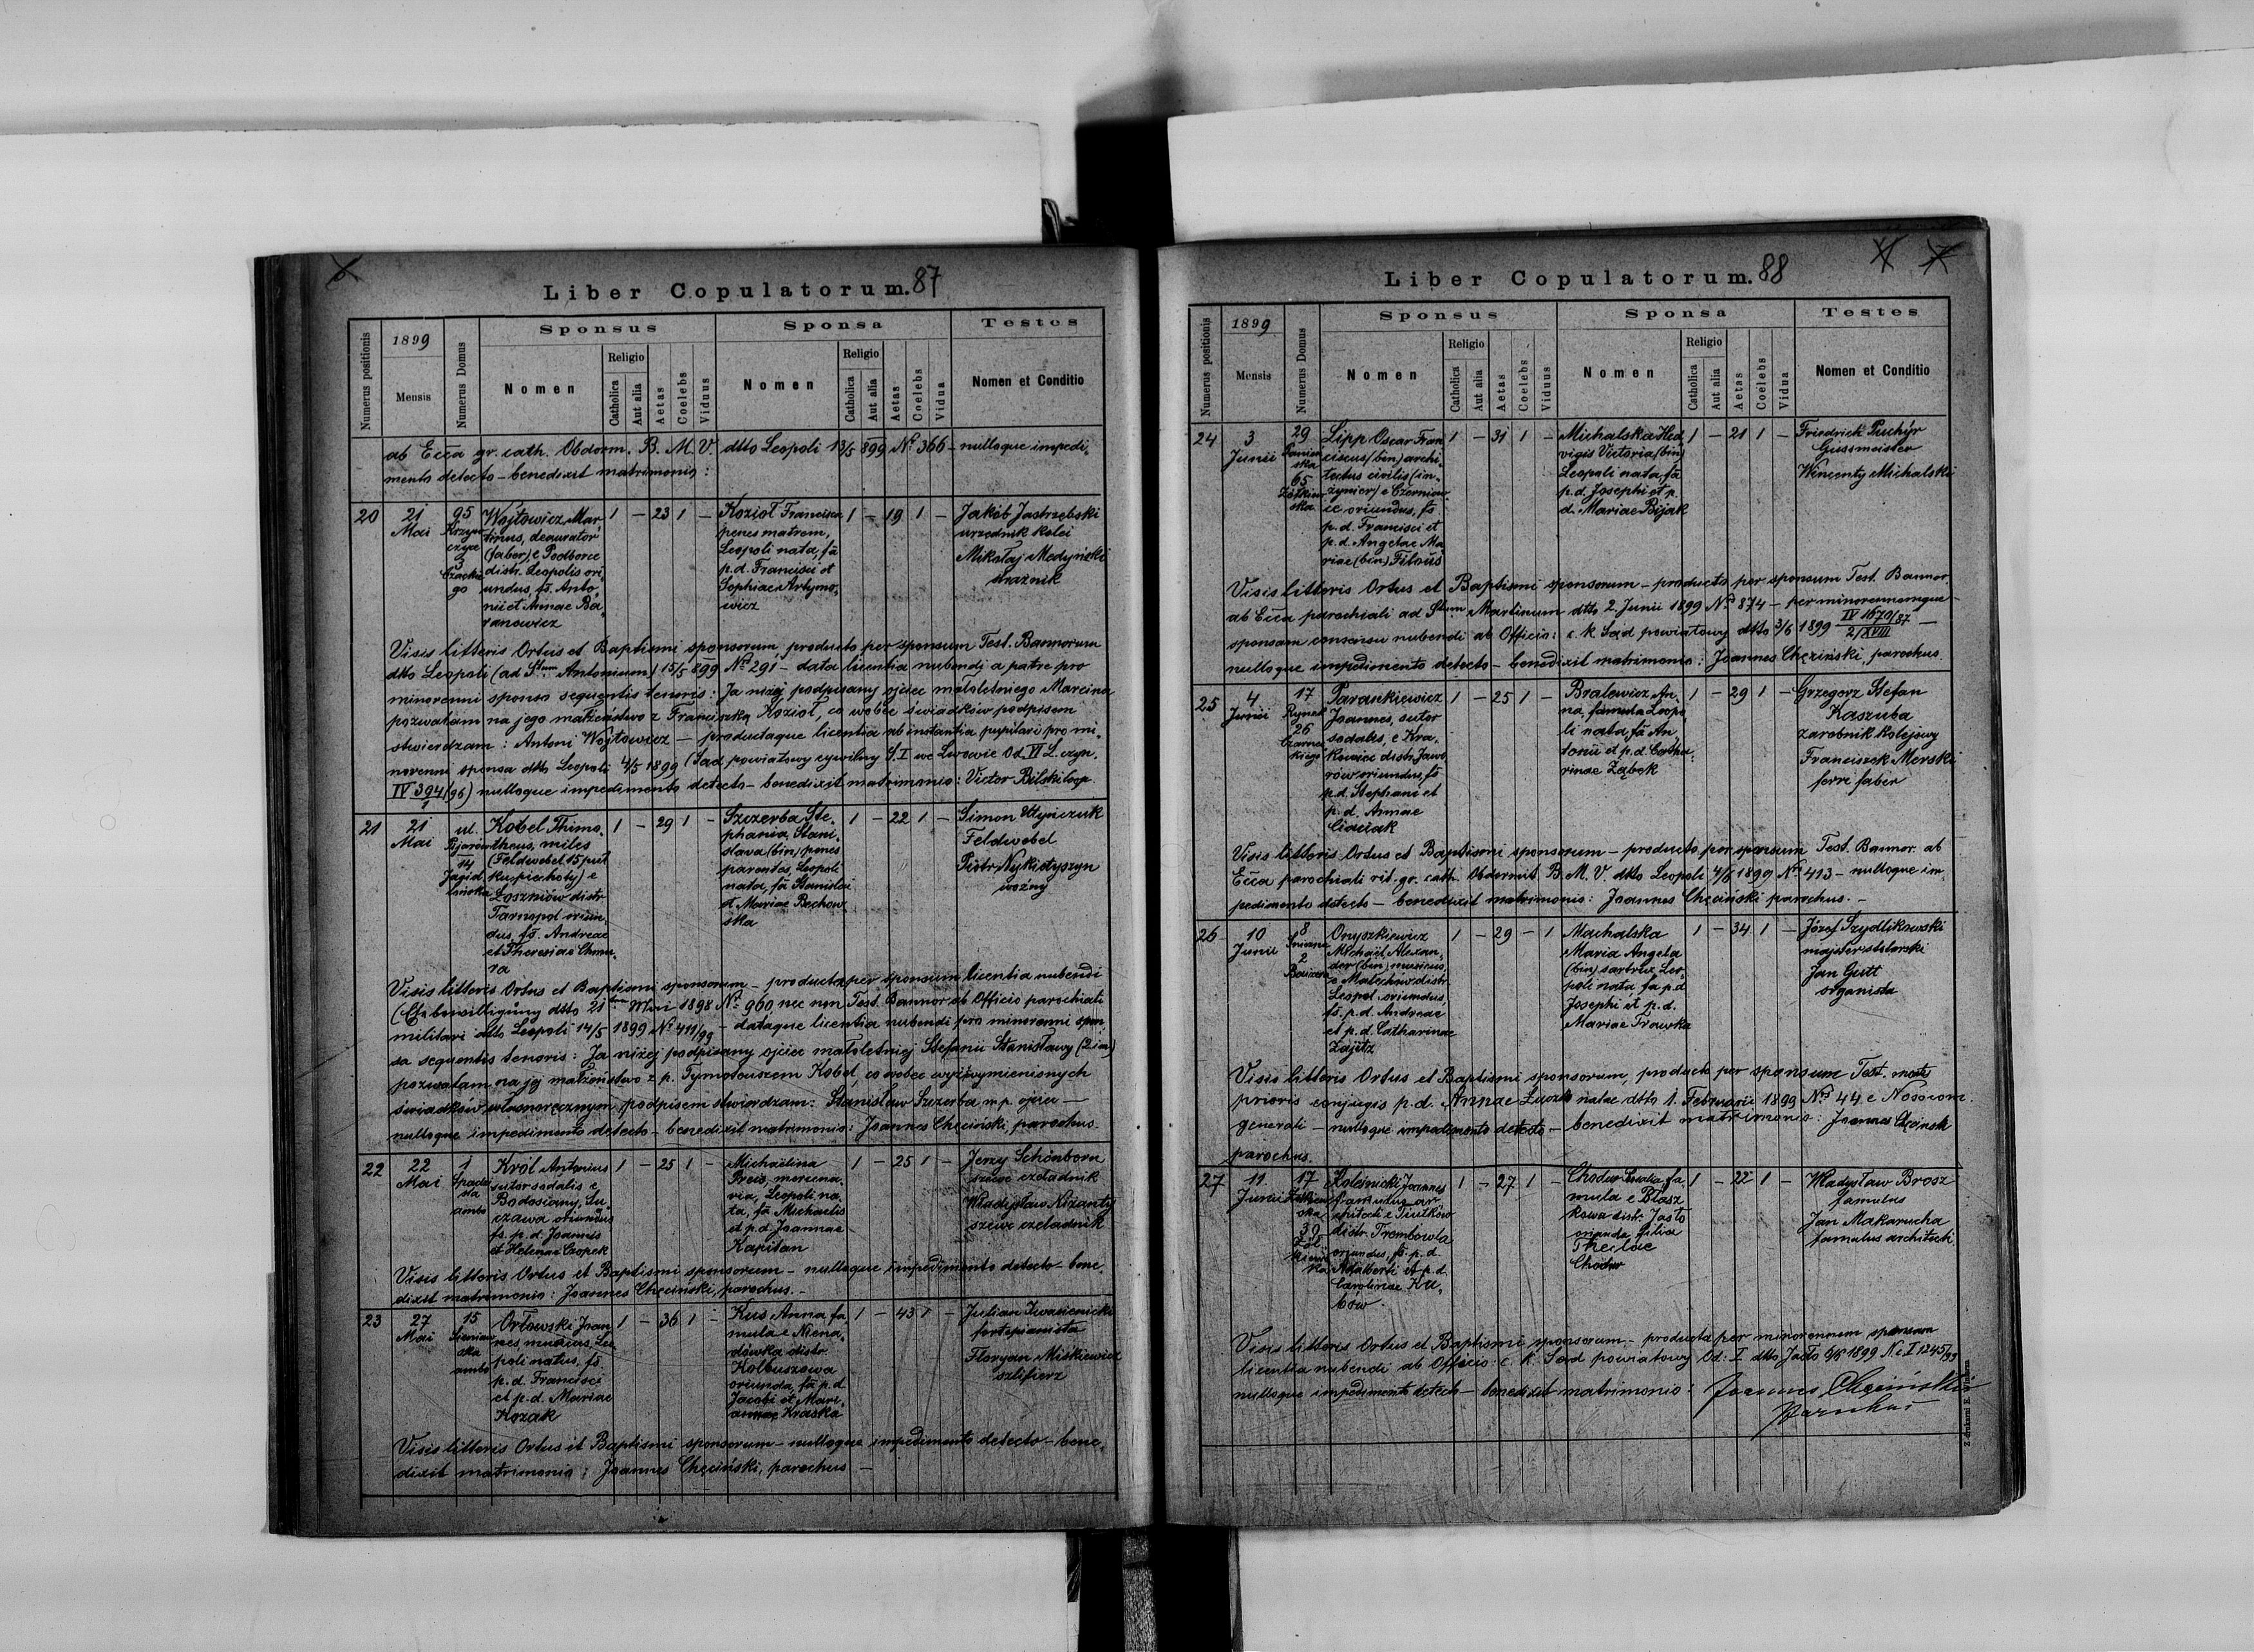 Liber Copulatorum. 87
Numerus positionis
1899
Mensis
Numerus Domus
Sponsus
Nomen
Religio
Catholica
Aut alia
Aetas
Coelebs
Viduus
Sponsa
Nomen
Religio
Catholica
Aut alia
Aetas
Coelebs
Vidua
Testes
Nomen et Conditio
ab Ecca gr. cath. Obdorm. B. M. V. dtto Leopoli 13/5 899 No 366 - nulloque impedi-
mento detecto - benedixit matrimonio:
20
21
Mai
95
3
Czackie
go
Wojtowicz Mar-
tinus, deaurator
(faber), e Podborce
distr. Leopolis ori-
undus, fs. Anto-
nii et Annae Ba-
ranowicz
1 - 23 1 -
Kozioł Francisca
penes matrem,
Leopoli nata, fa
p. d. Francisci et
Sophiae Artymo-
wicz
1 - 19 1 -
Jakób Jastrzębski
urzędnik kolei
Mikołaj Medyński
strażnik
Visis litteris Ortus et Baptismi sponsorum producto per sponsum Test. Bannorum
dtto Leopoli (ad Stum Antonium) 15/5 899 No 291 - data licentia nubendi a patre pro
minorenni sponso sequentis tenoris: Ja niżej podpisany ojciec małoletniego Marcina
pozwalam na jego małżeństwo z Franciszką Kozioł, co wobec świadków podpisem
stwierdzam: Antoni Wojtowicz - productaque licentia ab instantia pupilari pro mi-
norenni sponsa dtto Leopoli 4/5 1899 (Sąd powiatowy cywilny S. I we Lwowie Od. VI L. czyn.
IV 394/96
1
) nulloque impedimento detecto - benedixit matrimonio: Victor Bilski coop.
21
21
Mai
ul.
Pijarów
14
Jagiel-
lońska
Kobel Thimo-
theus, miles
(Feldwebel 15 puł
ku piechoty) e
Łoszniów distr
Tarnopol oriun-
dus, fs. Andreae
et Theresiae Chmu-
ra
1 - 29 1 -
Szczerba Ste-
phania Stani-
slava (bin) penes
parentes, Leopoli
nata, fa Stanislai
et Mariae Bechow-
ska
1 - 22 1 -
Simon
Feldwebel
Piotr Nykiatyszyn
woźny
Visis litteris Ortus et Baptismi sponsorum - producta per sponsum licentia nubendi
dtto 21 Mai 1898 No 960 nec non Test. Bannor. ab Officio parochiali
militari dtto Leopoli 14/5 1899 No 411/99 - dataque licentia nubendi pro minorenni spon-
sa sequentis tenoris: Ja niżej podpisany ojciec małoletniej Stefanii Stanisławy (2 im)
pozwalam na jej małżeństwo z p. Tymoteuszem Kobel, co wobec wyżwymienionych
świadków własnoręcznym podpisem stwierdzam: Stanisław Szczerba m.p. ojciec -
nulloque impedimento detecto - benedixit matrimonio: Joannes Chęciński, parochus.
22
22
Mai
1
ambo
Król Antonius
sutor sodalis e
Bodosiany, Su-
czawa oriundus
fs. p. d. Joannis
et Helenae Czopek
1 - 25 1 -
Michaëlina
Preis, mercena-
ria, Leopoli na-
ta, fa Michaelis
et p. d. Joannae
Kapitan
1 - 25 1 -
Jerzy Schönborn
szewc czeladnik
Władysław Niżanty
szewc czeladnik
Visis litteris Ortus et Baptismi sponsorum - nulloque impedimento detecto - bene-
dixit matrimonio: Joannes Chęciński, parochus. -
23
27
Mai
15
Sieniaw
ska
ambo
Orłowski Joan
nes musicus, Leo
poli natus, fs.
p. d. Francisci
et p. d. Mariae
Kozak
1 - 36 1 -
Kus Anna fa
mula e Niena-
dówka distr.
Kolbuszowa
oriunda, fa p. d
Jacobi et Mari-
annae Kraska
1 - 43 1 -
Julian Iwanicki
fortepianista
Floryan Miśkiewicz
szlifierz
Visis litteris Ortus et Baptismi sponsorum - nulloque impedimento detecto - bene-
dixit matrimonio: Joannes Chęciński, parochus -
Liber Copulatorum. 88
Numerus positionis
1899
Mensis
Numerus Domus
Sponsus
Nomen
Religio
Catholica
Aut alia
Aetas
Coelebs
Viduus
Sponsa
Nomen
Religio
Catholica
Aut alia
Aetas
Coelebs
Vidua
Testes
Nomen et Conditio
24
3
Junii
29
Panień
ska
65
Żółkiew
ska
Lipp Oscar Fran
ciscus (bin) archi-
tectus civilis (in-
żynier) e Czerniow-
ce oriundus, fs
p. d. Francisci et
p. d. Angelae Ma
riae (bin) Filouš
1 - 31 1 -
Michalska Hed
vigis Victoria (bin)
Leopoli nata, fa
p. d. Josephi et p.
d. Mariae Bijak
1 - 21 1 -
Friedrich Puchýr
Gussmeister
Wincenty Michalski
Visis litteris Ortus et Baptismi sponsorum - producto per sponsum Test. Bannor.
ab Ecca parochiali ad Stum Martinum dtto 2. Junii 1899 No 874 - per minorennemque
sponsam consensu nubendi ab Officio: c. k. Sąd powiatowy dtto 3/6 1899 IV 1670/87
2/XVIII
-
nulloque impedimento detecto - benedixit matrimonio: Joannes Chęciński parochus.
25
4
Junii
17
Rynek
26
Czarnec
kiego
Paraskiewicz
Joannes, sutor
sodalis, e Kra-
kowiec distr. Jawo
rów oriundus, fs
p. d. Stephani et
p. d. Annae
Ciaciak
1 - 25 1 -
Bralewicz An-
na, famula Leopo
li nata, fa An-
tonii et p. d. Catha-
rinae Ząbek
1 - 29 1 -
Grzegorz Stefan
Kaszuba
zarobnik kolejowy
Franciszek Merski
ferri faber
Visis litteris Ortus et Baptismi sponsorum - producto per sponsum Test. Bannor. ab
Ecca parochiali rit. gr. cath. Obdormit. B. M. V. dtto Leopoli 4/6 1899 No 413 - nulloque im-
pedimento detecto - benedixit matrimonio: Joannes Chęciński parochus. -
26
10
Junii
8
Śnieżna
2
Onyszkiewicz
Michaël Alexan-
der (bin) musicus,
e Malechów distr.
Leopol. oriundus,
fs. p. d. Andreae
et p. d. Catharinae
Zajätz
1 - 29 - 1
Machalska
Maria Angela
(bin) sartrix Leo-
poli nata fa p. d
Josephi et p. d.
Mariae Trawka
1 - 34 1 -
Józef Szydlikowski
majster stolarski
Jan Gutt
organista
Visis litteris Ortus et Baptismi sponsorum, producto per sponsum Test. mortis
prioris conjugis p. d. Annae natae dtto 1. Februarii 1899 No 44 e Nosocom.
generali - nulloque impedimento detecto - benedixit matrimonio: Joannes Chęciński
parochus.
27
11
Junii
17
39
Koleśnicki Joannes
famulus ar
chitecti e Tiutków
distr. Trembowla
oriundus, fs. p. d.
Adalberti et p. d.
Carolinae Ku-
bów.
1 - 27 1 -
Chodor Rosalia, fa
mula e Błasz
kowa distr. Jasło
oriunda, filia
Theclae
Chodor
1 - 22 1 -
Władysław Brosz
famulus
Jan Makarucha
famulus architecti
Visis litteris Ortus et Baptismi sponsorum - producta per minorennem sponsam
licentia nubendi ab Officio: c. k. Sąd powiatowy Od: I dtto Jasło 6/6 1899 Nc I 1245/99
nulloque impedimento detecto - benedixit matrimonio: Joannes Chęciński
Parochus
Z drukarni E. Winiarza